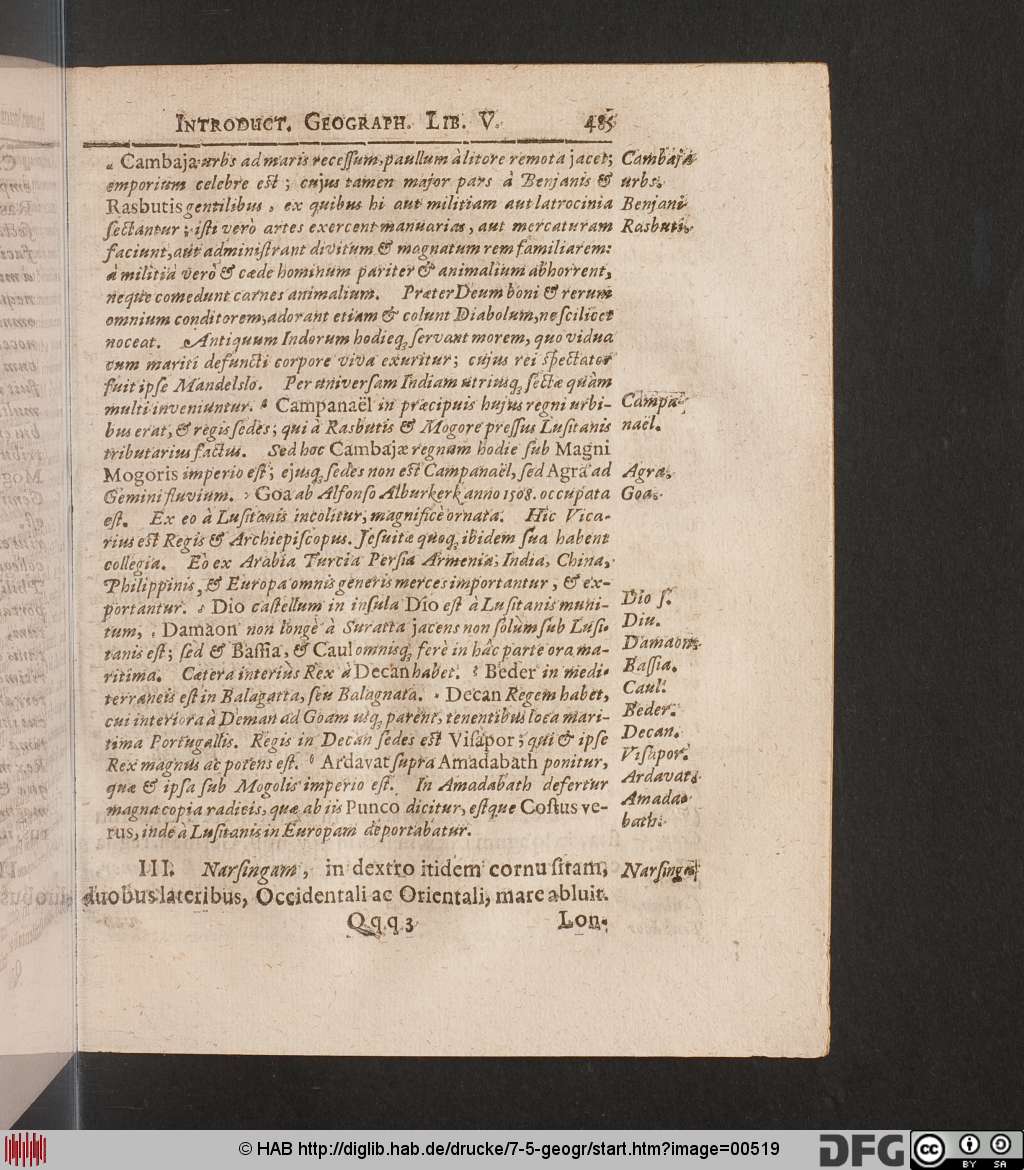 INTRODUCT. GEOGRAPH. LIB. V. 485
Cambaja urbs ad maris recessum, paullum à litore remota jacet;
emporium celebre est; cujus tamen major pars à Benjanis &
Rasbutis gentilibus, ex quibus hi aut militiam aut latrocinia
sectantur; isti verò artes exercent manuarias, aut mercaturam
faciunt, aut administrant divitum & magnatum rem familiarem:
à militiâ verò & cæde hominum pariter & animalium abhorrent,
neque comedunt carnes animalium. Præter Deum boni & rerum
omnium conditorem, adorant etiam & colunt Diabolum, ne scilicet
noceat. Antiquum Indorum hodieq; servant morem, quo vidua
cum mariti defuncti corpore viva exuritur; cujus rei spectator
fuit ipse Mandelslo. Per universam Indiam utriusq; sectæ quàm
multi inveniuntur. Campanaël in præcipuis hujus regni urbi-
bus erat, & regis sedes; qui à Rasbutis & Mogore pressus Lusitanis
tributarius factus. Sed hoc Cambajæ regnum hodie sub Magni
Mogoris imperio est; ejusq; sedes non est Campanaël, sed Agra ad
Gemini fluvium. Goa ab Alfonso Alburkerk anno 1508. occupata
est. Ex eo à Lusitanis incolitur, magnificè ornata. Hic Vica-
rius est Regis & Archiepiscopus. Jesuitæ quoq; ibidem sua habent
collegia. Eò ex Arabia Turcia Persia Armenia, India, China,
Philippinis, & Europa omnis generis merces importantur, & ex-
portantur. Dio castellum in insula Dio est à Lusitanis muni-
tum, Damaon non longè à Suratta jacens non solùm sub Lusi-
tanis est; sed & Bassia, & Caul omnisq; ferè in hâc parte ora ma-
ritima. Cætera interiùs Rex à Decan habet. Beder in medi-
terraneis est in Balagatta, seu Balagnata. Decan Regem habet,
cui interiora à Deman ad Goam usq; parent, tenentibus loca mari-
tima Portugallis. Regis in Decan sedes est Visapor; qui & ipse
Rex magnus ac potens est. Ardavat supra Amadabath ponitur,
quæ & ipsa sub Mogolis imperio est. In Amadabath defertur
magna copia radicis, quæ ab iis Punco dicitur, estque Costus ve-
rus, inde à Lusitanis in Europam deportabatur.
III. Narsingam, in dextro itidem cornu sitam,
duobus lateribus, Occidentali ac Orientali, mare abluit.
Qqq 3 Lon-
Cambaja
urbs.
Benjani
Rasbuti.
Campa-
naël.
Agra.
Goa.
Dio s.
Diu.
Damaon.
Bassia.
Caul.
Beder.
Decan.
Visapor.
Ardavat.
Amada-
bath.
Narsinga
© HAB http://diglib.hab.de/drucke/7-5-geogr/start.htm?image=00519
DFG
cc
BY SA